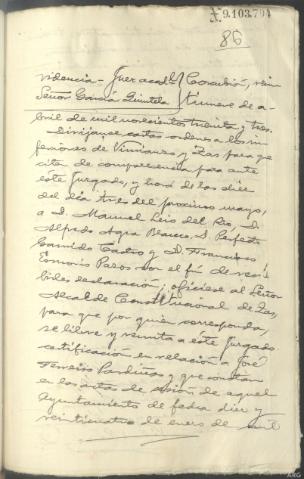 X.9.103.794
86
videncia - Juez acctl. Corcubión, vein
Señor García Quintela tinueve de a-
bril de mil novecientos treinta y tres.
Dirijanse cartas ordenes a los in
feriores de Vimianzo y Zas para que
citen de comparecencia para ante
este Juzgado, y hora de las diez
del día tres del proximo mayo,
a D. Manuel Leis del Río, D.
Alfredo Agra Blanco, D. Perfecto
Garrido Castro y D. Francisco
Pazos por el fin de reci-
birles declaracion; ofíciese al Señor
Alcalde Constitucional de Zas,
para que por quien corresponda,
se libre y remita a éste Juzgado
certificacion en relacion a José
Pardiñas y que constan
en las actas de sesión de aquel
Ayuntamiento de fecha diez y
veinticuatro de enero de mil
ARG